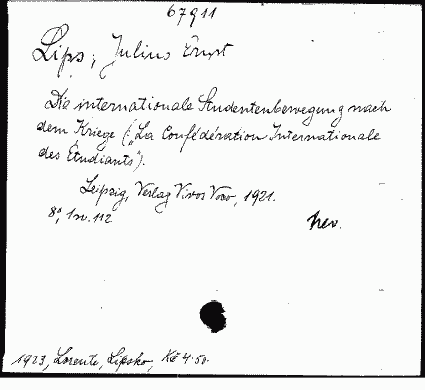 67911
Lips, Julius Ernst
Die internationale Studentenbewegung nach
dem Kriege („La Confédération Internationale
des Étudiants").
Leipzig, Verlag Vivos Voco, 1921.
8°, 112
1923, Lorentz, Lipsko, Kč 4·50.